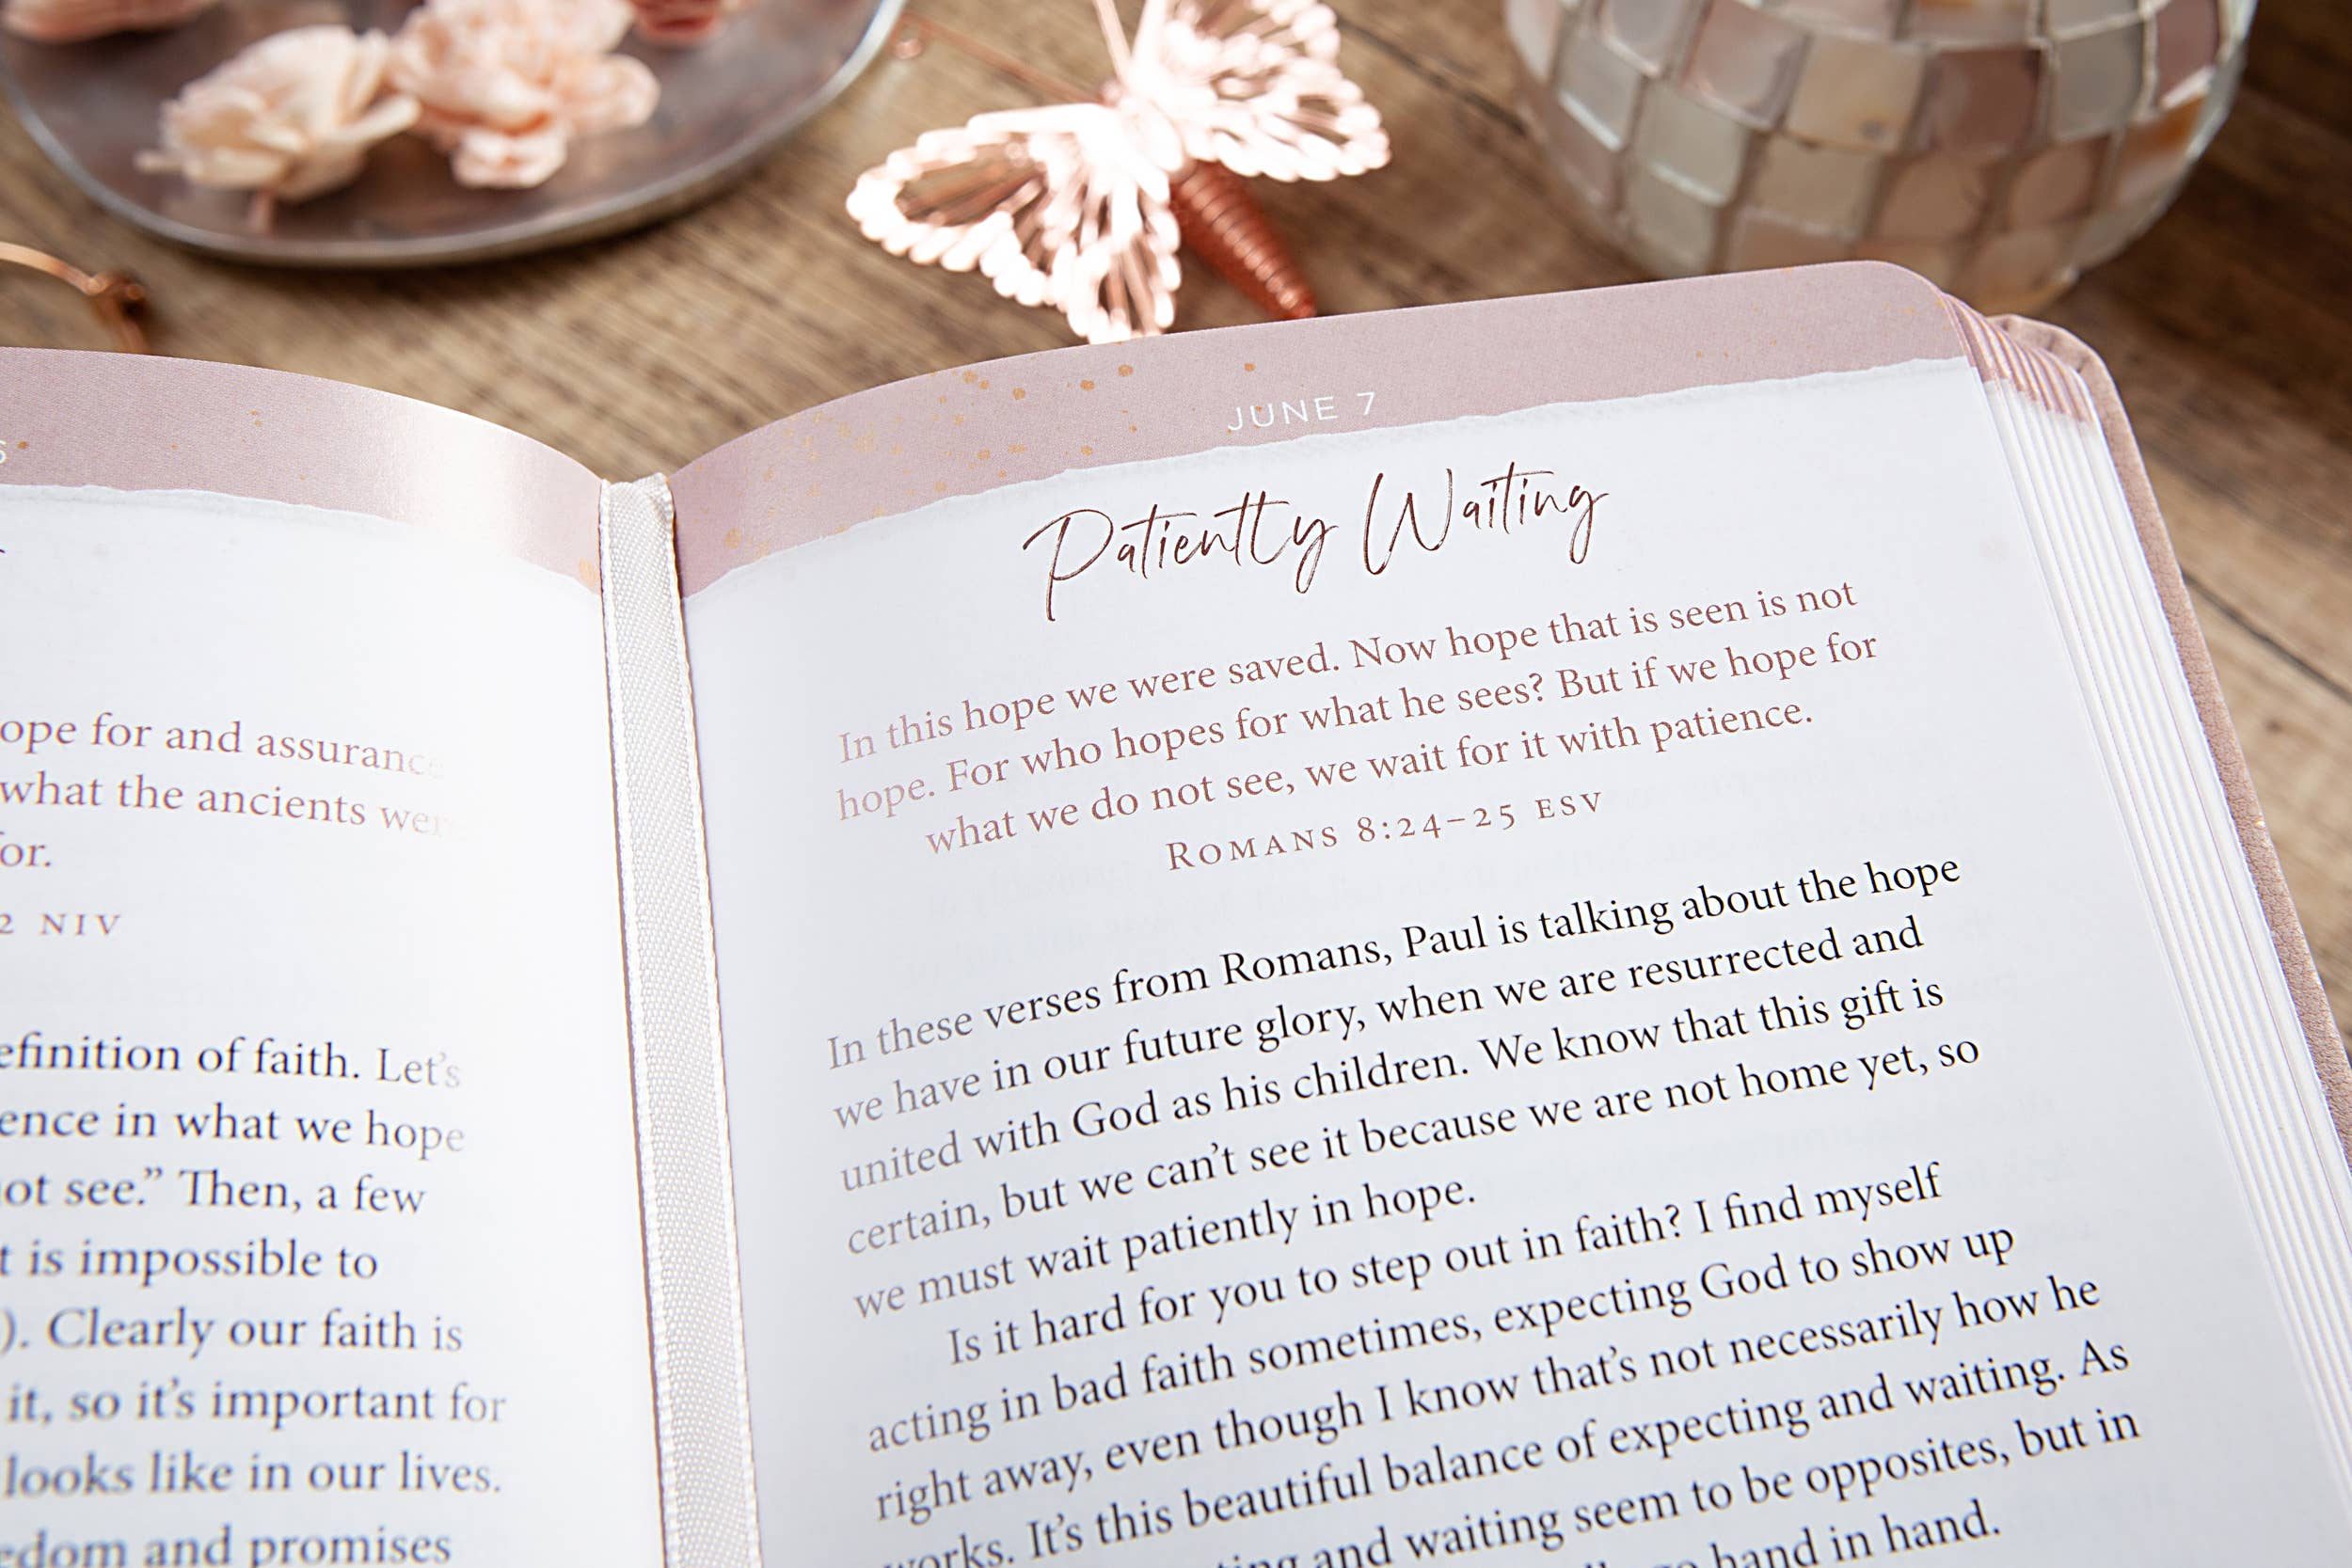 6
ope for and assurance
what the ancients were
or.
2 NIV
efinition of faith. Let's
ence in what we hope
ot see.” Then, a few
t is impossible to
). Clearly our faith is
it, so it's important for
looks like in our lives.
edom and promises
JUNE 7
Patiently Waiting
In this hope we were saved. Now hope that is seen is not
hope. For who hopes for what he sees? But if we hope for
what we do not see, we wait for it with patience.
ROMANS 8:24–25 ESV
In these verses from Romans, Paul is talking about the hope
we have in our future glory, when we are resurrected and
united with God as his children. We know that this gift is
certain, but we can't see it because we are not home yet, so
we must wait patiently in hope.
Is it hard for you to step out in faith? I find myself
acting in bad faith sometimes, expecting God to show up
right away, even though I know that's not necessarily how he
works. It's this beautiful balance of expecting and waiting. As
and waiting seem to be opposites, but in
hand in hand.